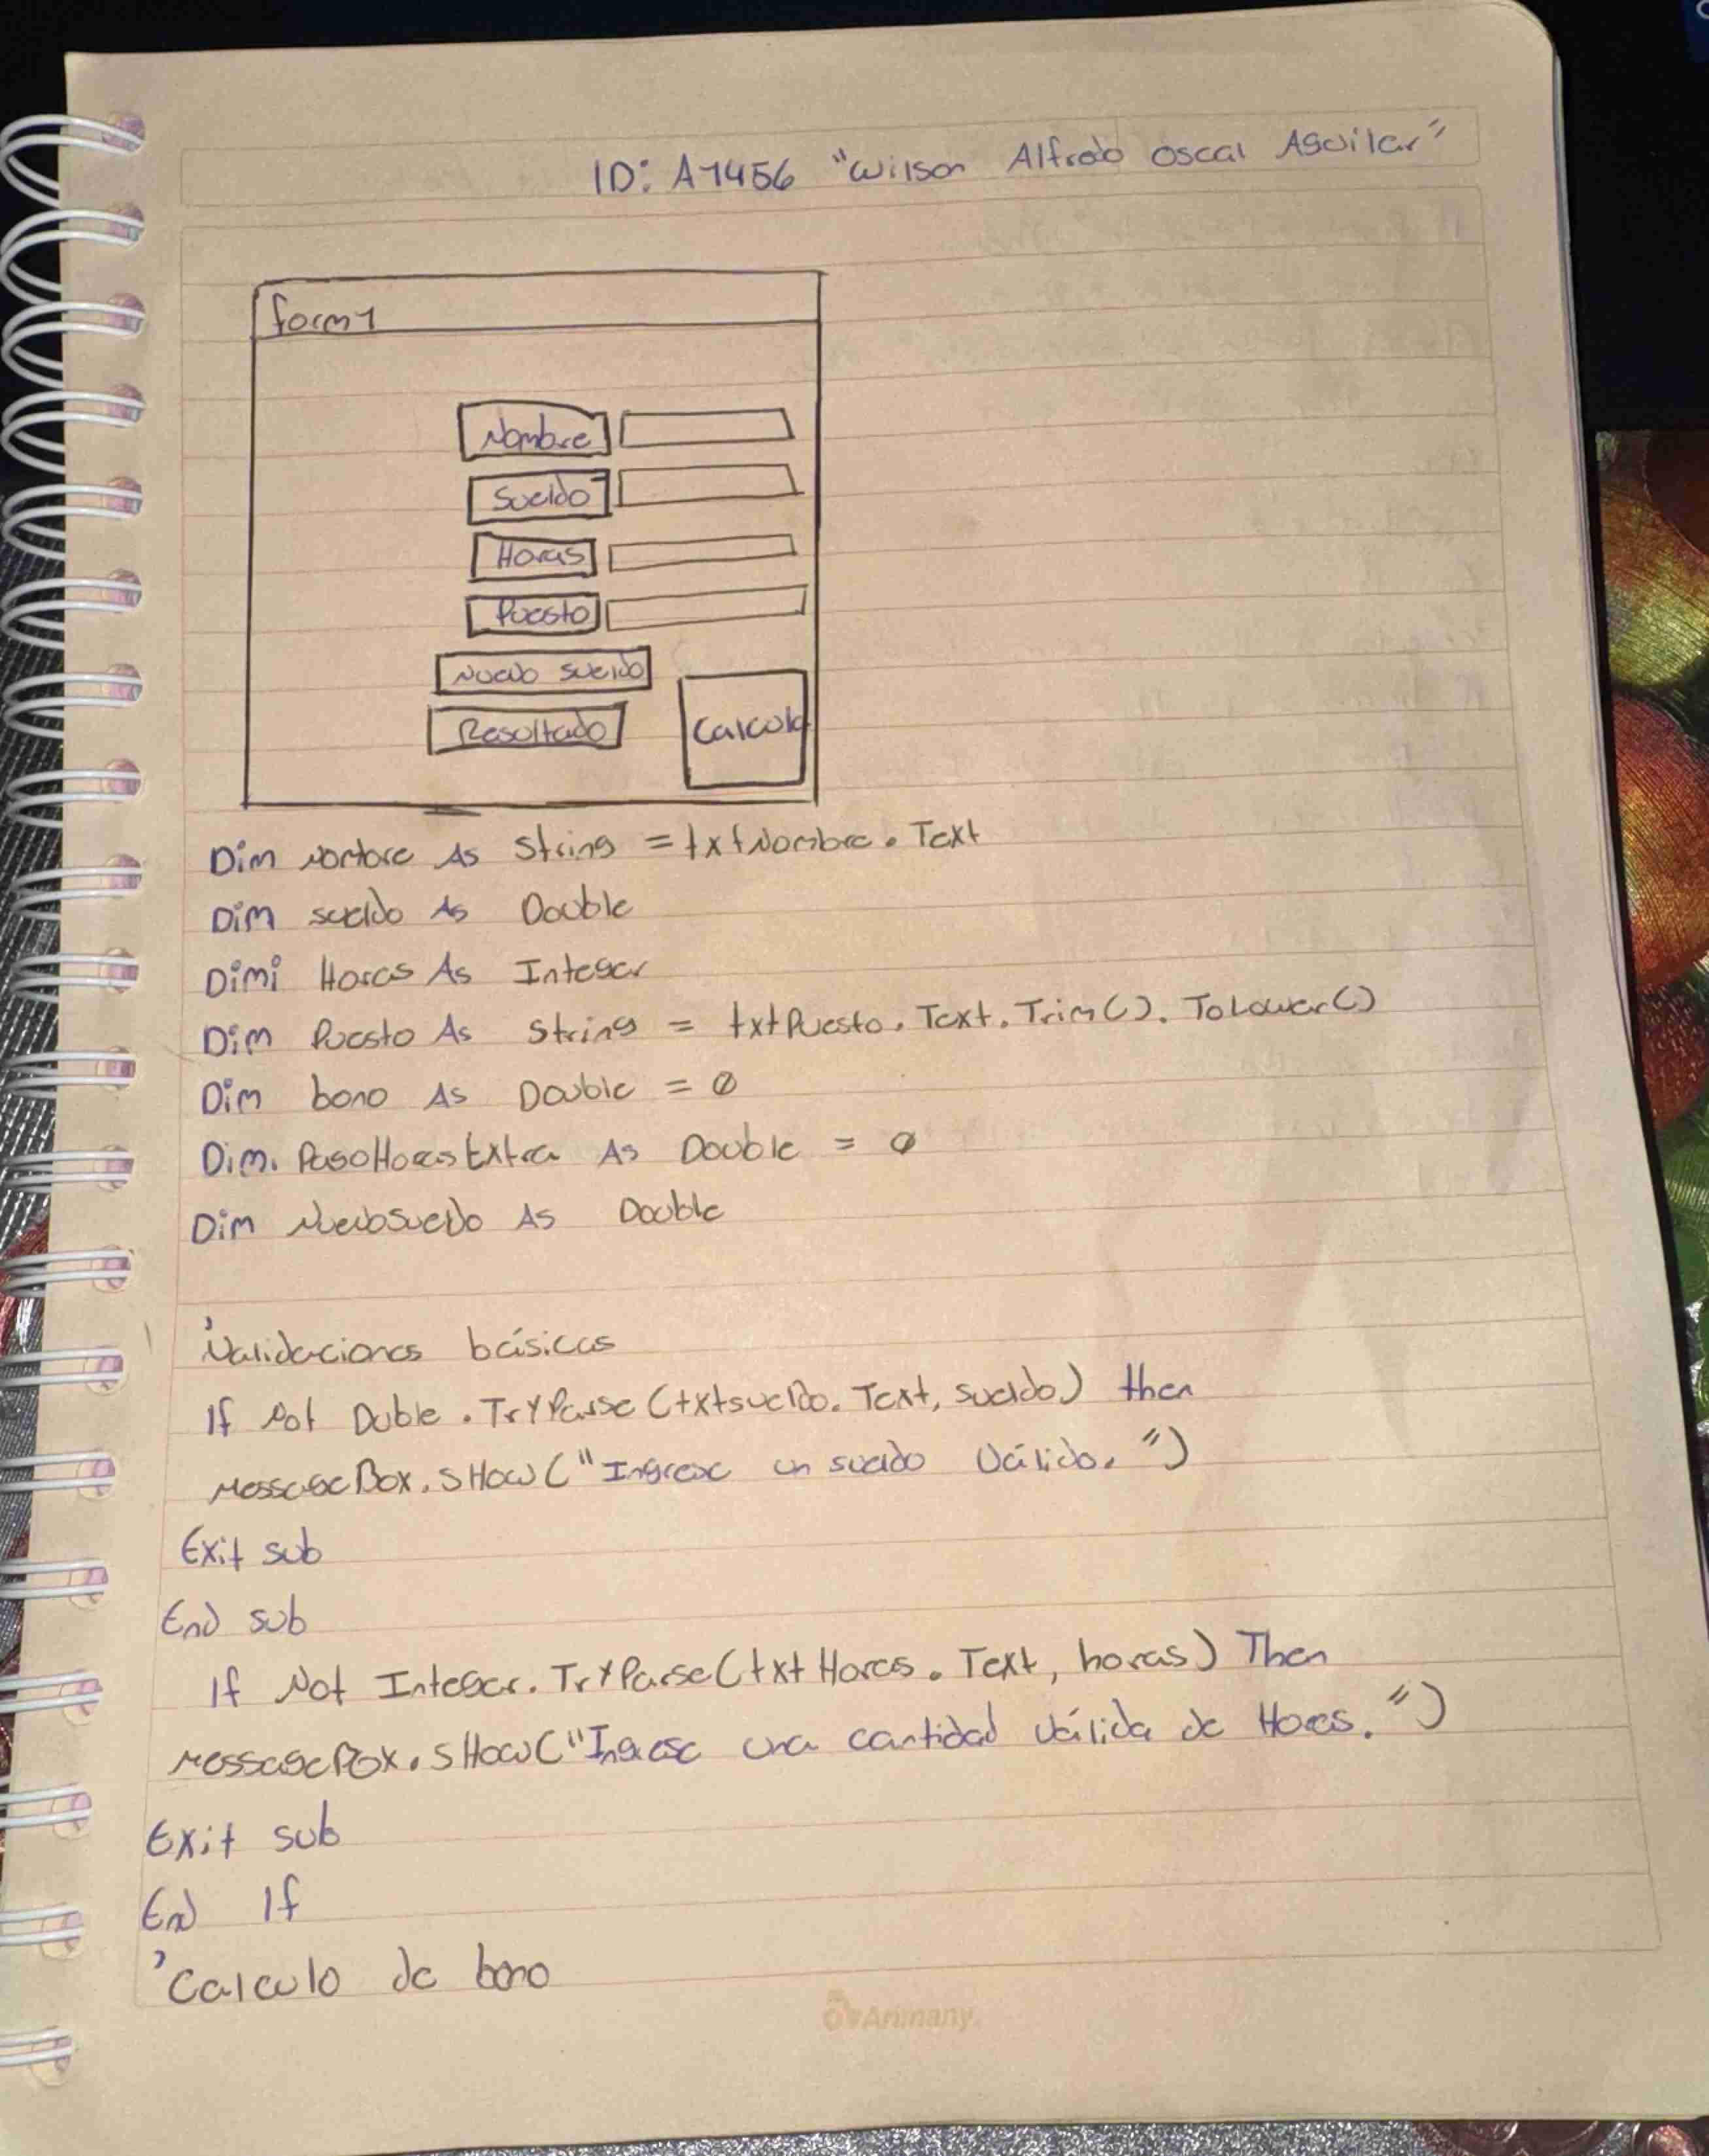 ID: A1456 "Wilson Alfredo oscal Aguilar"
form1
Nombre
Sueldo
Horas
Puesto
Nuevo sueldo
Resultado
Calcula
Dim Nombre As String = txtNombre. Text
Dim sueldo As Double
Dimi Horas As Integer
Dim Puesto As String = txtPuesto. Text. Trim(). ToLower()
Dim bono As Double = 0
Dim. PagoHorasExtra As Double = 0
Dim NuevoSueldo As Double
'Validaciones básicas
If Not Duble. TryParse (txtsueldo. Text, sueldo) then
MessageBox. SHow ("Ingrese un sueldo Válido.")
Exit sub
End sub
If Not Integer. TryParse (txt Horas. Text, horas) Then
MessageBox. SHow ("Ingese una cantidad Válida de Horas.")
Exit sub
End If
'Calculo de bono
Arimany.